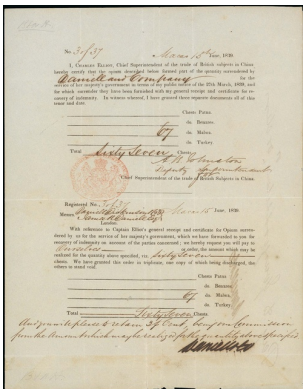 No. 30/37
Macao 15th June, 1839.
I, CHARLES ELLIOT, Chief Superintendent of the trade of British subjects in China
hereby certify that the opium described below formed part of the quantity surrendered by
Daniell and Company for the
service of her majesty's government in terms of my public notice of the 27th March, 1839, and
for which surrender they have been furnished with my general receipt and certificate for re-
covery of indemnity. In witness whereof, I have granted three separate documents all of this
tenor and date.
Chests Patna
do. Benares.
67 do. Malwa.
do. Turkey
Total Sixty Seven Chests.
Deputy Superintendent
Chief Superintendent of the trade of British Subjects in China.
Registered No. 30/37
Macao 15 June, 1839
Messrs.
London.
With reference to Captain Elliot's general receipt and certificate for Opium surren-
dered by us for the service of her majesty's government, which we have forwarded to you for
recovery of indemnity on account of the parties concerned; we hereby request you will pay to
Ourselves or order, the amount which may be
realized for the quantity above specified, viz. Sixty Seven
chests. We have granted this order in triplicate, one copy of which being discharged, the
others to stand void.
Chests Patna
do. Benares.
67 do. Malwa.
do. Turkey
Total Sixty Seven Chests.
And you will please to retain Commission
from the Amount which may be realized for the quantity above specified